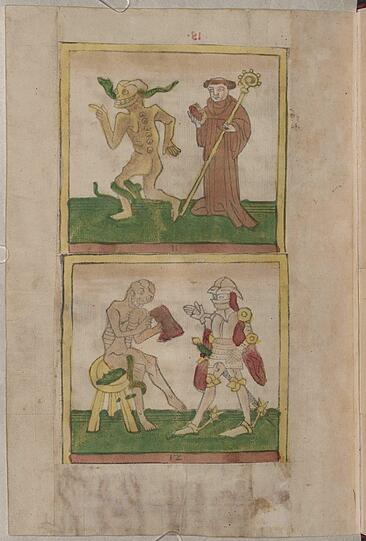 18.
11
12